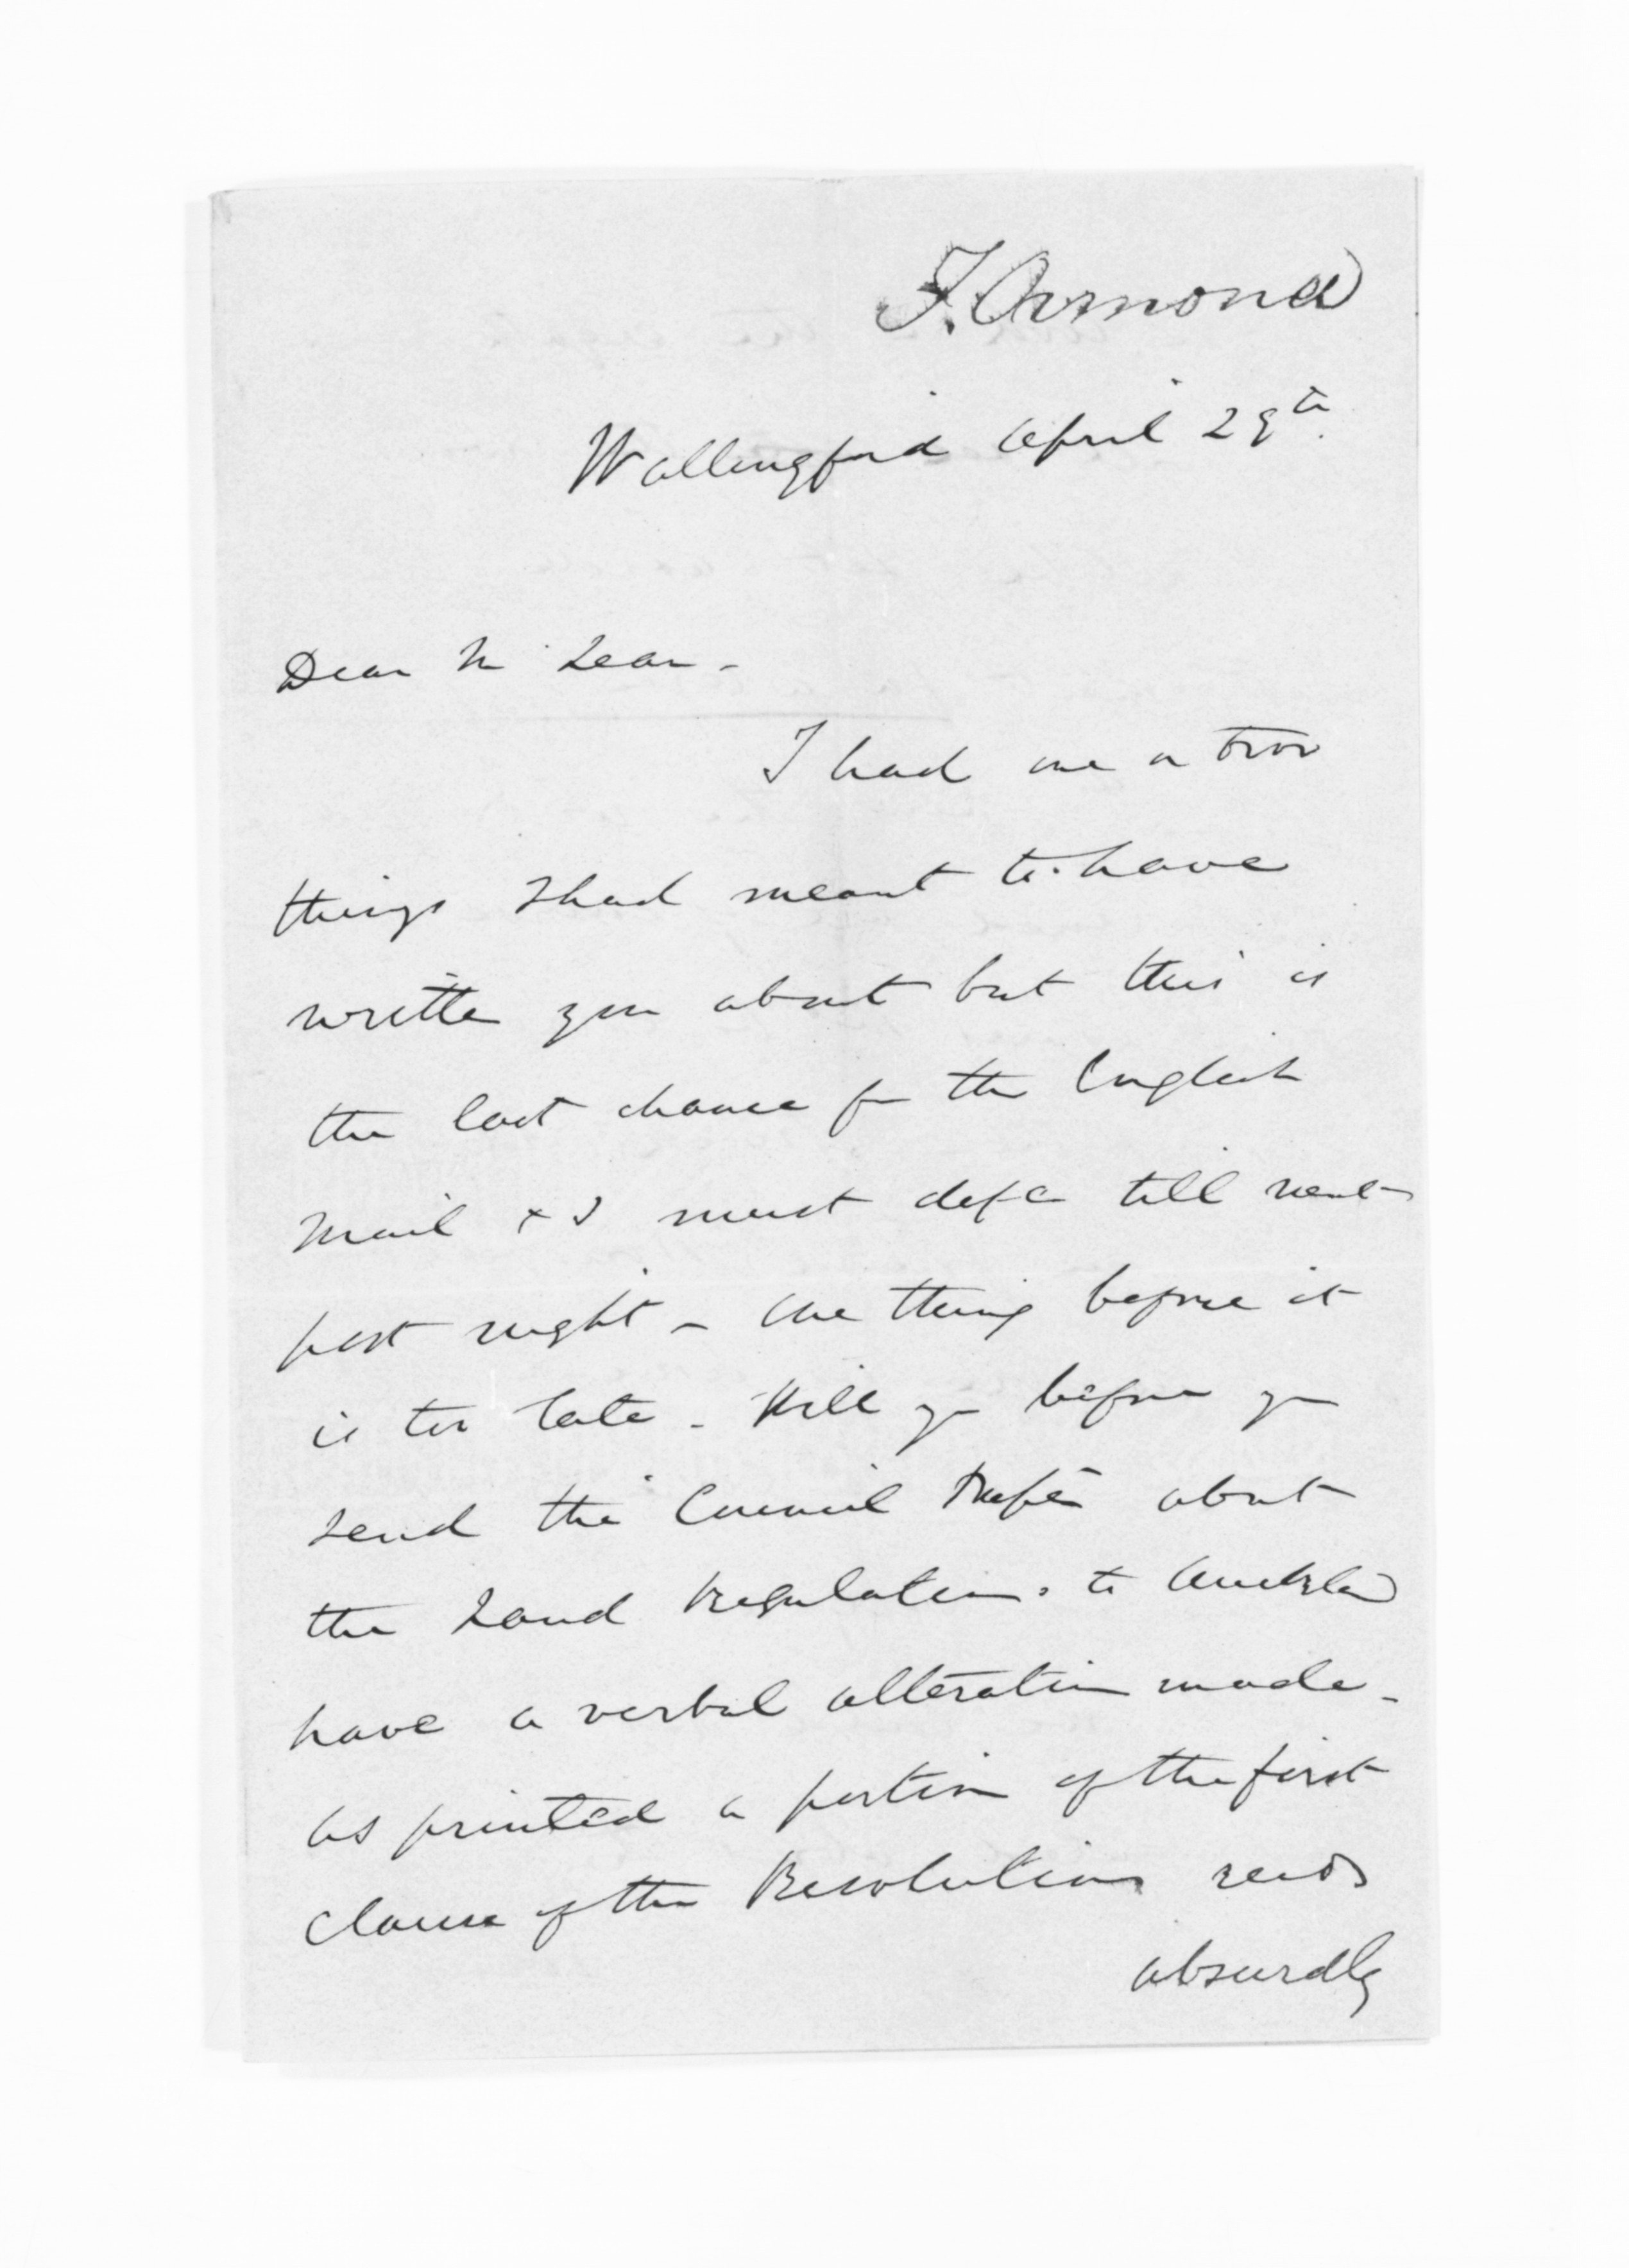 J. Ormond
Wallingford April 29th.
Dear McLean -
I had one or two
things I had meant to have
written you about but this is
the last chance for the English
Mail & I must defer till next
post night - One thing before it
is too late - Will you before you
send the Council Papers about
the Land Regulations to Auckland
have a verbal alteration made -
As printed a portion of the first
Clause of the Resolutions reads
absurdly